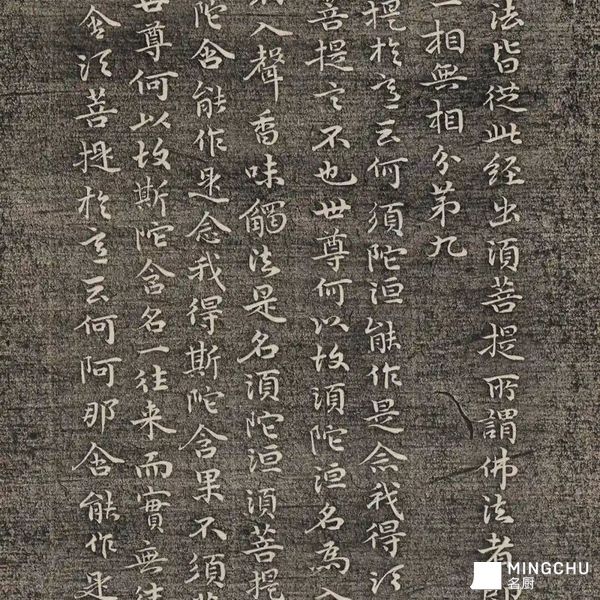 法皆從此经出須菩提所謂佛法者即
一相無相分第九
提於意云何須陀洹能作是念我得須
菩提言不也世尊何以故須陀洹名為入
入聲香味觸法是名須陀洹須菩提
陀含能作是念我得斯陀含果不須菩
世尊何以故斯陀含名一往来而實無往
含須菩提於意云何阿那含能作是
MINGCHU
名厨